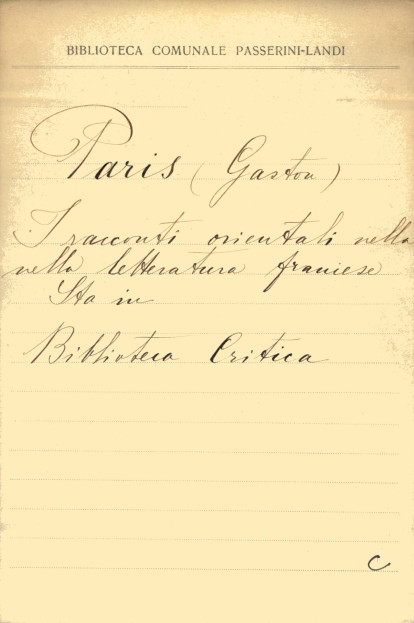 BIBLIOTECA COMUNALE PASSERINI-LANDI
Paris (Gaston)
I racconti orientali nella
nella letteratura francese
Sta in
Biblioteca Critica
C